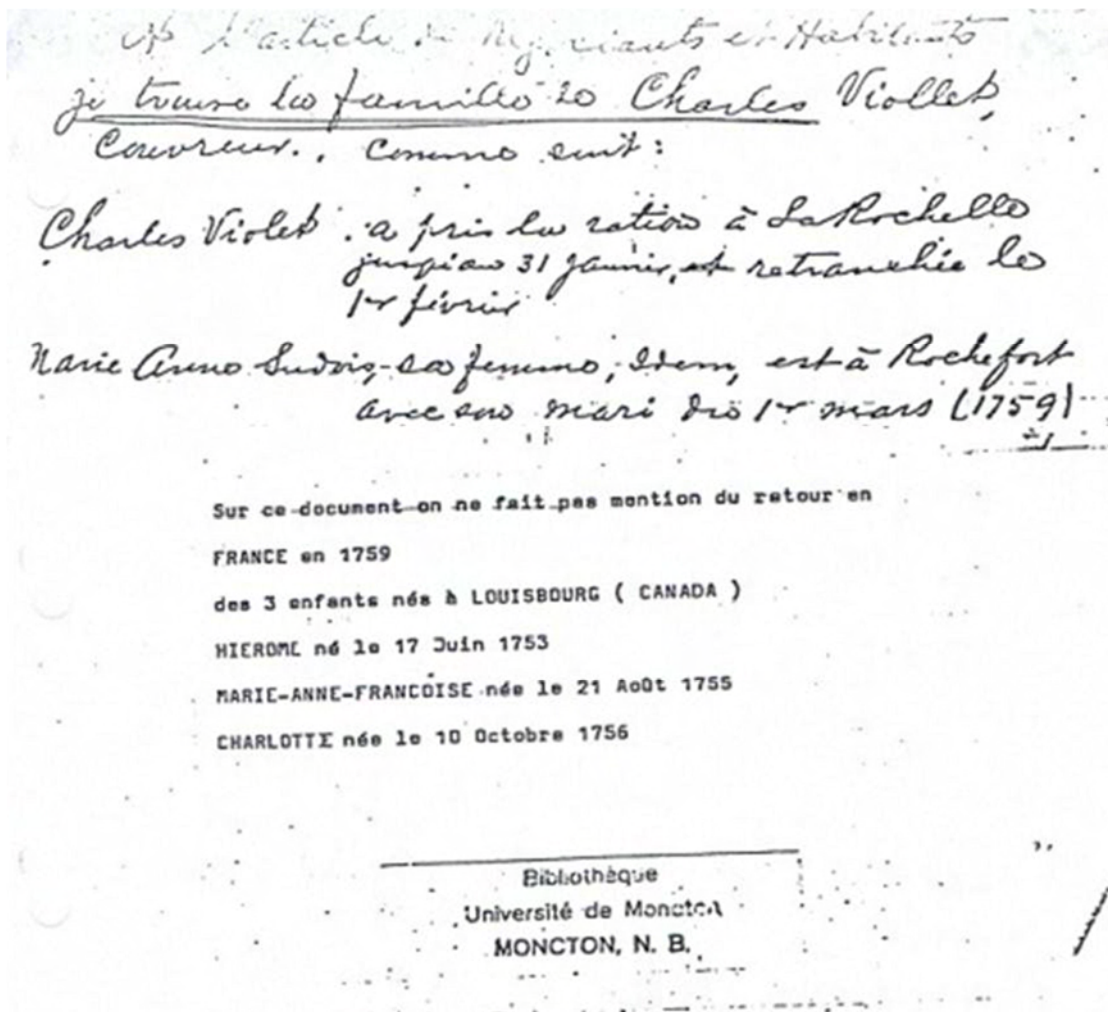 l'article Négociants et Habitants
je trouve la famille de Charles Viollet,
Couvreur., Comme suit:
Charles Violet. a pris la ration à La Rochelle
jusqu'au 31 janvier, et retranchée le
1er février
Marie Anne Sudois, sa femme, Idem, est à Rochefort
avec son mari du 1er mars (1759)
Sur ce document on ne fait pas mention du retour en
FRANCE en 1759
des 3 enfants nés à LOUISBOURG ( CANADA )
HIEROME né le 17 Juin 1753
MARIE-ANNE-FRANCOISE née le 21 Août 1755
CHARLOTTE née le 10 Octobre 1756
Bibliothèque
Université de Moncton
MONCTON, N. B.